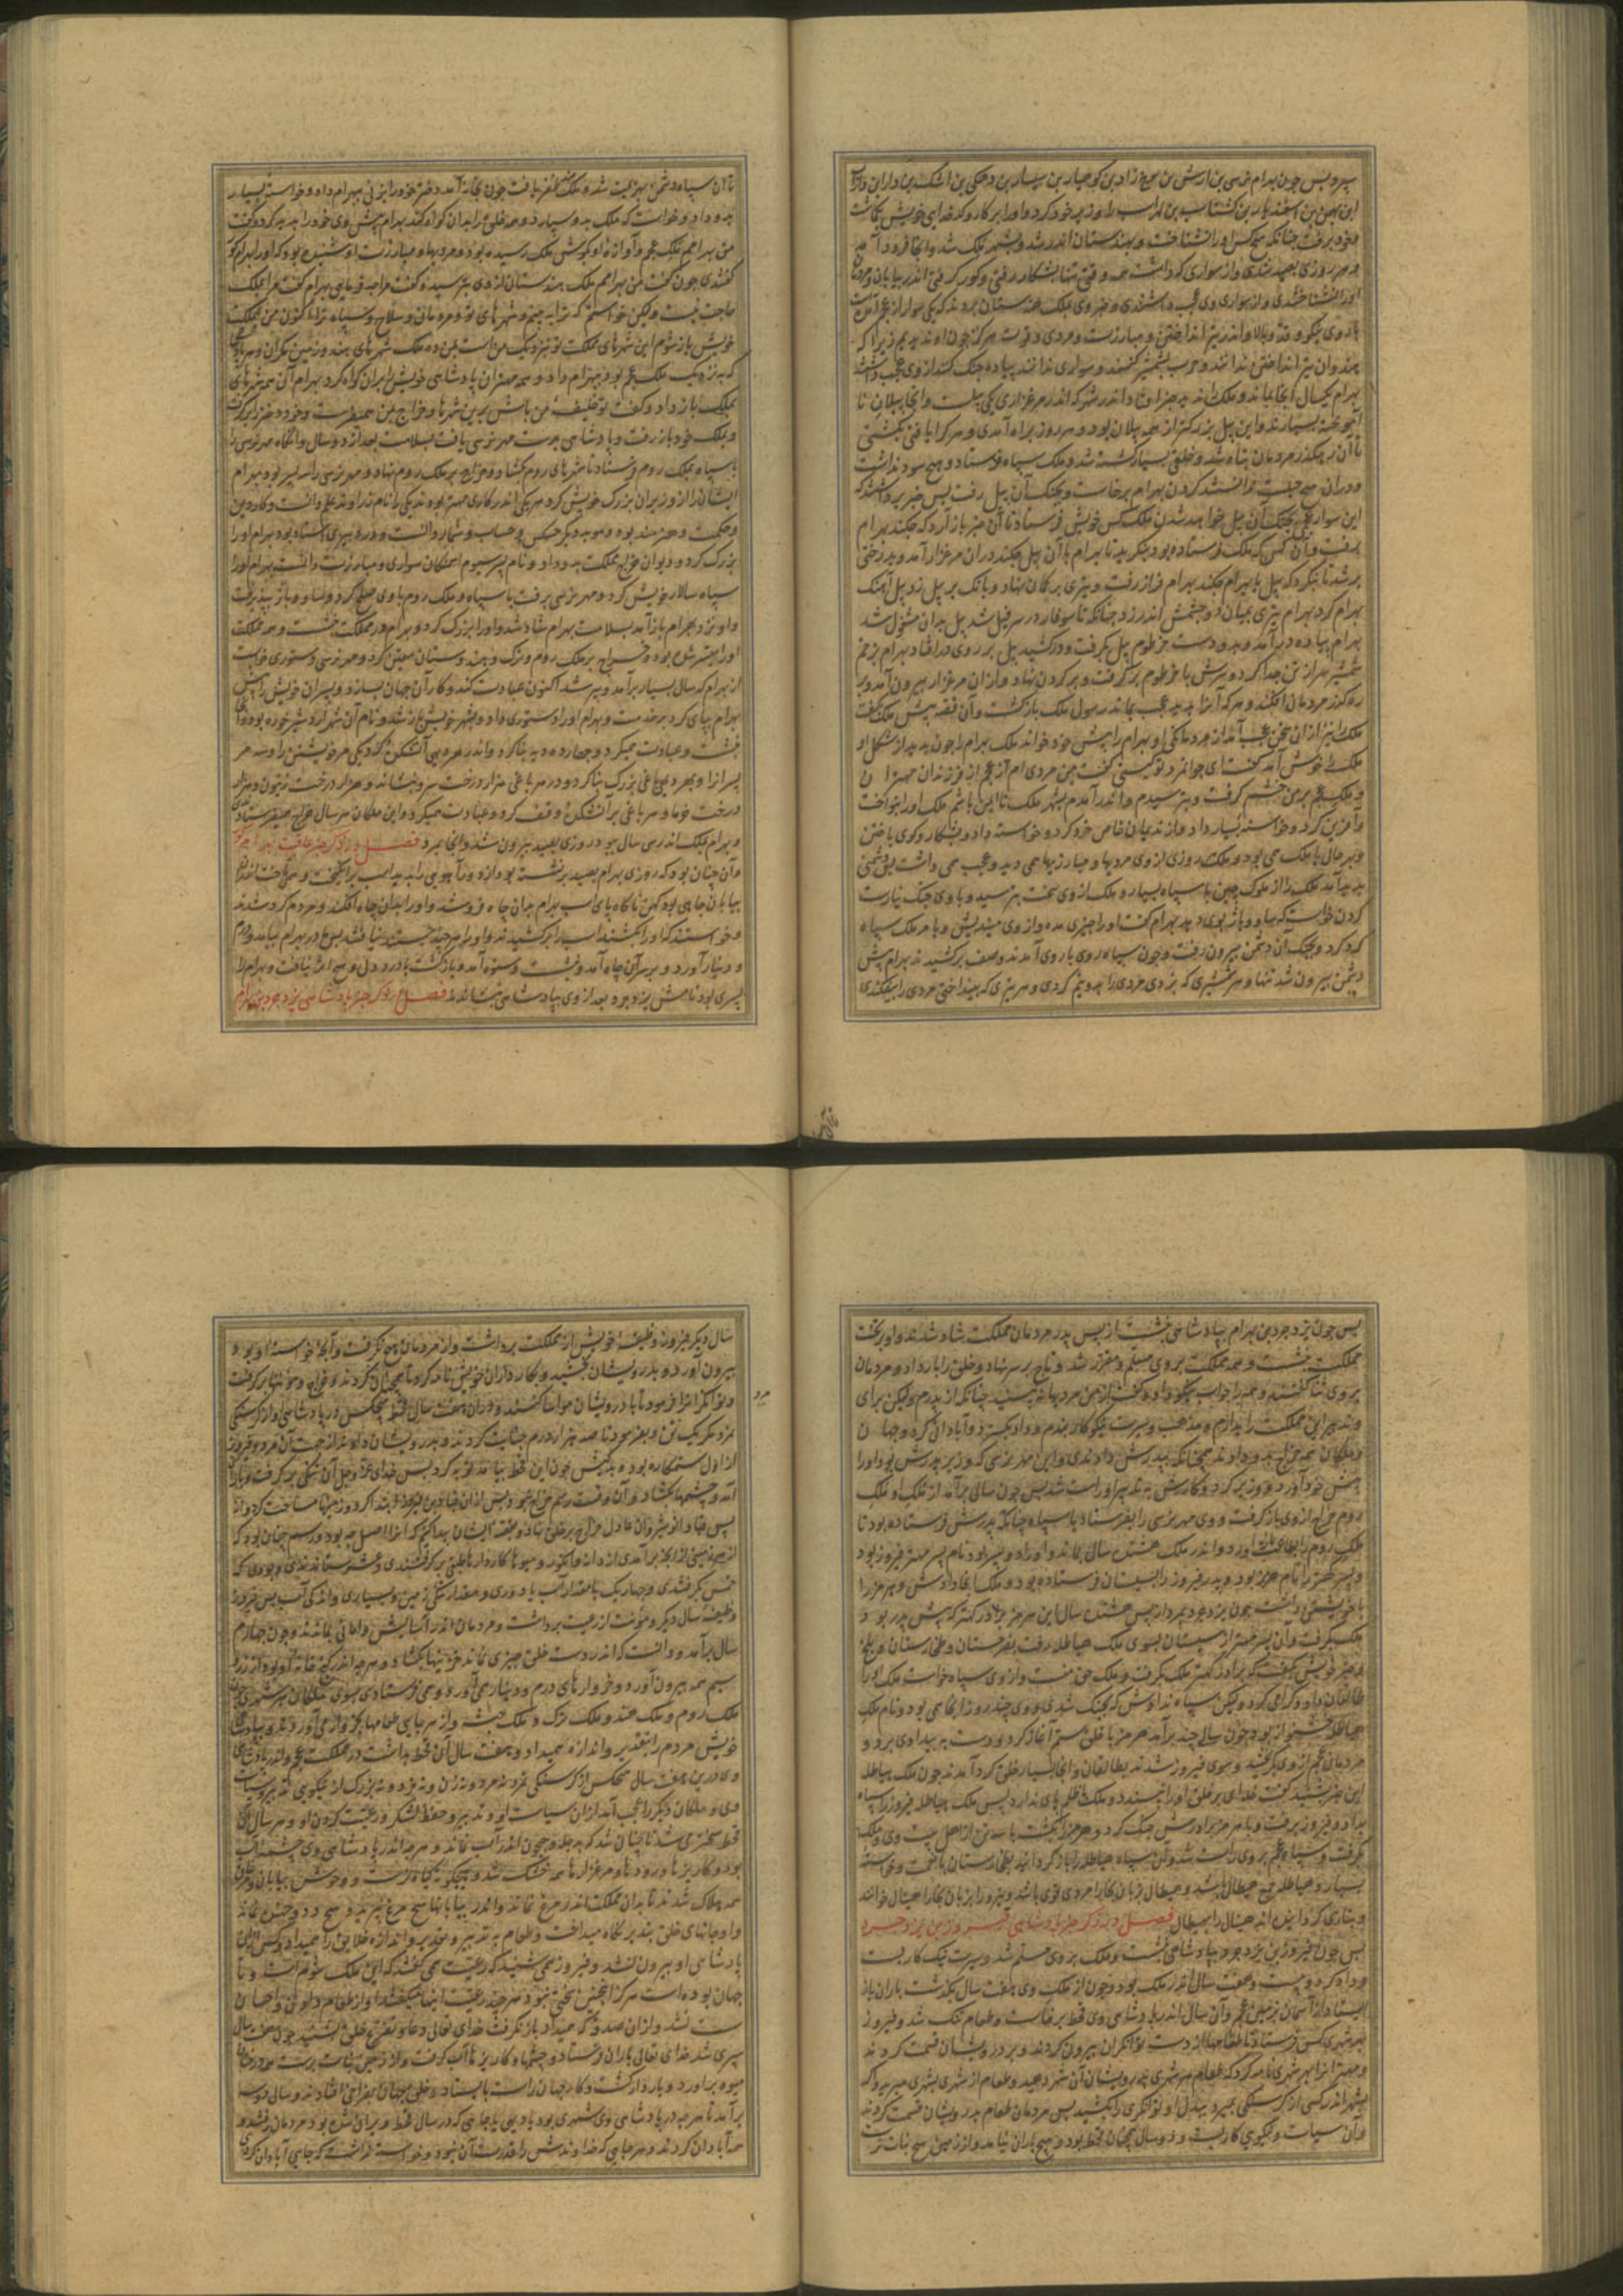 پس چون بهرام نرسی بن
ابن بهمن بن اسفندیار بن گشتاسب بن لهراسب را وزیر خود کرد و او را بر کار و کدخدایی خویش بگماشت
و خود برفت چنانکه هیچ کس او را نشناخت و بهندستان اندر شد و بشهر ملک شد و آنجا فرود آمد
و هر روزی بصید شدی و از سواری که داشت همه وقتی تنها بشکار رفتی و گور گرفتی اندر بیابان و مردمان
او را نشناختندی و از سواری وی عجب داشتندی و خبر وی بملک هندستان بردند که یکی سوار از عجم آمده است
با روی نیکو و قد و بالا و اندر تیر انداختن و مبارزت و مردی و قوت هرگز چون او ندیدیم زیرا که
هندوان تیر انداختن ندانند و حرب بشمشیر کنند و سواری ندانند پیاده جنگ کنند از وی عجب داشتند
بهرام یکسال آنجا بماند و ملک اندر مرغزاری یکی پیلست و آنجا پیلان
و این پیل بزرگتر از همه پیلان بود و هر روز براه آمدی و هر که را یافتی بکشتی
تا آن رهگذر مردمان تباه شد و خلقی بسیار کشته شد و ملک سپاه فرستاد و هیچ سود نداشت
و در آن هیچ حیلت نتوانستند کردن بهرام برخاست و بجنگ آن پیل رفت پس خبر برداشتند که
این سوار عجمی بجنگ آن پیل خواهد شدن ملک کس خویش فرستاد تا آن خبر باز آرد که چکند بهرام
برفت و آن کس که ملک فرستاده بود بنگرید تا بهرام با آن پیل چکند در آن مرغزار آمد و بدرختی
بر شد تا بنگرد که پیل با بهرام چکند بهرام فراز رفت و تیری بر کمان نهاد و بانگ بر پیل زد پیل آهنگ
بهرام کرد بهرام تیری بمیان دو چشمش اندر زد چنانکه تا سوفار در سر پیل شد پیل بدان مشغول شد
بهرام پیاده در آمد و بدو دست خرطوم پیل بگرفت و در کشید پیل بر روی در افتاد بهرام بزخم
شمشیر سر از تن جدا کرد و سرش با خرطوم برگرفت و بر گردن نهاد و از آن مرغزار بیرون آمد و بر
رهگذر مردمان افکند و هر که آنرا بدید عجب بماند رسول ملک بازگشت و آن قصه پیش ملک بگفت
ملک نیز از آن سخن عجب آمد از مردانگی او بهرام را پیش خود خواند ملک بهرام را چون بدید از شکل او
ملک را خوش آمد گفت ای جوانمرد تو کیستی گفت من مردی ام از عجم از فرزندان مهتران
و ملک عجم بر من خشم گرفت و بترسیدم و اندر آمدم بشهر ملک تا این باشم ملک او را بنواخت
و آفرین کرد و خواسته بسیار داد و از ندیمان خاص خود کرد و خواسته داد و بشکار و گوی باختن
و بهر حال با ملک می بود و ملک هر روزی از وی مردیها و مبارزیها همی دید و عجب همی داشت پس دشمنی
پدید آمد ملک را از ملوک چین با سپاه بسیار و ملک از وی سخت بترسید و با وی جنگ نیارست
کردن خواست که ساو و باژ بوی دهد بهرام گفت او را چیزی مده و از وی میندیش و با هر ملک سپاه
گرد کرد و بجنگ آن دشمن بیرون رفت و چون سپاه روی با روی آمدند و صف بر کشیدند بهرام پیش
دشمن بیرون شد تنها و هر شمشیری که بزدی مردی را بدو نیم کردی و هر تیری که بینداختی مردی را بیفکندی
تا آن سپاه دشمن بهزیمت شد و ملک ظفر یافت چون بخانه آمد دختر خود را بزنی ببهرام داد و خواسته بسیار
بدو داد و خواست که ملک بدو سپارد
من بهرامم ملک عجم و آوازه او بگوش ملک رسیده بود و مردیها و مبارزت او شنیده بود که او را بهرام گور
گفتندی چون گفت من بهرامم ملک هندستان از وی بترسید و گفت مرا چه فرمایی بهرام گفت مرا بملک
حاجت نیست ولیکن خواستم که ترا ببینم و شهرهای تو و مردمان و سلاح و سپاه ترا اکنون من بمملکت
خویش باز شوم این شهرهای مملکت تو نزدیک من است بمن ده ملک شهرهای هند و زمین مکران
که بنزدیک ملک عجم بود ببهرام داد و همه مهتران پادشاهی خویش را بدان گواه کرد بهرام آن شهرهای
بملک باز داد و گفت تو خلیفه من باش برین شهرها و خراج بمن همی فرست و خود دختر را برگرفت
و بملک خود باز رفت و پادشاهی بدست مهرنرسی یافت بسلامت بعد از دو سال و آنگاه مهرنرسی را
با سپاه بملک روم فرستاد تا شهرهای روم بگشاد و خراج بر ملک روم نهاد و مهرنرسی را سه پسر بود بهرام
ایشان را از وزیران بزرگ خویش کرد و هر یکی اندر کاری مهتر بود و یکی را نام زراوند علم دانست و کار دین
و حکمت و خردمند بود و موبد دیگر جشنس و حساب و شمار دانست و در دبیری استاد بود بهرام او را
بزرگ کرد و دیوان خراج مملکت بدو داد و نام پسر سیوم سواری و مبارزت دانست بهرام او را
سپاه سالار خویش کرد و مهرنرسی برفت با سپاه و ملک روم با وی صلح کرد و ساو و باژ بپذیرفت
و او نزد بهرام باز آمد بسلامت بهرام شاد شد و او را بزرگ کرد و بهرام در مملکت بنشست و همه مملکت
او را میسر شده بود و خراج بر ملک روم و ترک و هندوستان معین کرد و مهرنرسی دستوری خواست
از بهرام که سال بسیار برآمد و پیر شد اکنون عبادت کند و کار آن جهان بسازد و پسران خویش را پیش
بهرام بپای کرد بخدمت و بهرام او را دستوری داد و بشهر خویش باز شد و نام آن شهر اردشیر خوره بود و آنجا
بنشست و عبادت میکرد و چهار ده دیه بنا کرد و اندر هر دیهی آتشکده کرد یکی مر خویشتن را و سه مر
پسرانرا و بهر دیهی باغی بزرگ بنا کرد و در هر باغی هزار درخت سرو بنشاند و هزار درخت زیتون و هزار
درخت خرما و هر باغی بر آتشکده وقف کرد و عبادت همیکرد و این ملکان هر سال خراج همیفرستادندی
و بهرام بملک اندر سی سال بود روزی بصید بیرون شد و آنجا بمرد فصل در ذکر خبر عاقبت بهرام گور
و آن چنان بود که روزی بهرام بصید بر نشسته بود از دور آهویی را بدید اسب برانگیخت و همی تاخت اندر آن
بیابان چاهی بود کهن ناگاه پای اسب بهرام بدان چاه فرو شد و او را بدان چاه افکند و مردم گرد شدند
و خواستند که او را بکشند اسب را بر کشیدند و او را هر چند جستند نیافتند پس مادر بهرام بیامد و درم
و دینار آورد و بر سر آن چاه آمد و بنشست و ستوه آمد و بازگشت با درد دل و هیچ اثر نیافت و بهرام را
پسری بود نامش یزدجرد بعد از وی بپادشاهی بنشاندند فصل در ذکر خبر پادشاهی یزدجرد بن بهرام
پس چون یزدجرد بن بهرام بپادشاهی بنشست از پس پدر مردمان مملکت شاد شدند و او بر تخت
مملکت بنشست و همه مملکت بر وی مسلم و مقرر شد و تاج بر سر نهاد و خلق را بار داد و مردمان
بر وی ثنا گفتند و همه را جواب نیکو داد و گفت از من مردیها نه بینید چنانکه از پدرم ولیکن برای
و تدبیر این مملکت را بدارم و مذهب و سیرت نیکو کار بندم و داد بگسترد و آبادانی کرد و جهان
و ملکان همه خراج بدو دادند همچنانکه بپدرش دادندی و این مهرنرسی که وزیر پدرش بود او را
پیش خود آورد و وزیر کرد و کارش به تدبیر او راست شد پس چون سالی برآمد از ملک او ملک
روم خراج از وی باز گرفت و وی مهرنرسی را بفرستاد با سپاه چنانکه پدرش فرستاده بود تا
ملک روم را بطاعت باز آورد و اندر ملک هشتده سال بماند و او را دو پسر بود نام پسر مهتر فیروز بود
و پسر کهتر را نام هرمز بود و پدر فیروز را بسیستان فرستاده بود و ملک آنجا دادش و هرمز را
با خویشتن داشت چون یزدجرد بمرد از پس هشتده سال این هرمز برادر کهتر که پیش پدر بود
ملک بگرفت و آن پسر مهتر از سیستان بسوی ملک هیاطله رفت بغرجستان و طخارستان و بلخ
و خبر خویش بگفت که برادر کهتر ملک بگرفت و ملک حق منست و از وی سپاه خواست ملک او را
طالقان داد و گرامی کرد ولیکن سپاه ندادش که بجنگ شدی و وی چند روز آنجا همی بود و نام ملک
هیاطله خشنواز بود چون سالی چند برآمد هرمز با خلق ستم آغاز کرد و دست به بیدادی برد و
مردمان عجم از وی بگریختند و سوی فیروز شدند بطالقان و آنجا بسیار خلق گرد آمدند چون ملک هیاطله
این خبر بشنید گفت خدای بر خلق او را نپسندد و ملک با ظلم پای ندارد پس ملک هیاطله فیروز را سپاه
بداد و فیروز برفت و با هرمز برادرش جنگ کرد و هرمز را بکشت با سه تن از اهل بیت وی و ملک
بگرفت و سپاه عجم بر وی راست شد و آن سپاه هیاطله را باز گردانید بطخارستان با نعمت و خواسته
بسیار و هیاطله جمع هیطال باشد و هیطال بزبان بخارا مردی قوی باشد
و بتازی گردانیده اند هیتال را بهیطال فصل در ذکر خبر پادشاهی فیروز بن یزدجرد
پس چون فیروز بن یزدجرد بپادشاهی بنشست و ملک بر وی مسلم شد و سیرت نیک کار بست
و داد کرد و بیست و هفت سال اندر ملک بود و چون از ملک وی هفت سال بگذشت باران باز
ایستاد از آسمان بزمین عجم و آن سال اندر پادشاهی وی قحط برخاست و طعام تنگ شد و فیروز
بهر شهری کس فرستاد تا طعامها از دست توانگران بیرون کردند و بر درویشان قسمت کردند
و مهترانرا بهر شهری نامه کرد که طعام هر شهری بدرویشان آن شهر دهید و طعام از شهری بشهری مبرید و گر
بشهر اندر کسی از گرسنگی بمیرد ببدل او توانگری را بکشم پس مردمان طعام بدرویشان قسمت کردند
و آن سیاست و نیکویی کار بست و دو سال همچنان قحط بود و هیچ باران نیامد و از زمین هیچ نبات نرست
سال دیگر فیروز وظیفه خویش از مملکت برداشت و از مردمان هیچ نگرفت و آنچه خواسته او بود
بیرون آورد و بدرویشان بخشید و کارداران خویش نامه کرد تا همچنان کردند و خراج و مونتها برگرفت
و توانگرانرا فرمود تا با درویشان مواسا کنند و در آن هفت سال قحط هیچکس در پادشاهی او از گرسنگی
نمرد مگر یک تن و بفرمود تا صد هزار درم جنایت کردند و بدرویشان دادند از جهت آن مرد و فیروز
از اول ستمکاره بود و بدکیش چون این قحط بیامد توبه کرد پس خدای عز و جل آن تنگی برگرفت و باران
آمد و چشمها بگشاد و آن وقت رسم خراج نبود و پس از آن قباد بن فیروز ابتدا کرد و زمینها مساحت کرد و از
پس قباد انوشیروان عادل خراج بر خلق نهاد و بقصه ایشان پیدا کنم که آنرا اصل چه بود و رسم چنان بود که
از هر زمینی از آنچه بر آمدی از دانه و انگور و میوها کارداران ملک برگرفتندی و عشر ستاندندی و بودی که
خمس بگرفتندی و چهار یک بمقدار آب یا دوری و مقدار تنگی زمین و بسیاری و اندکی آب پس فیروز
وظیفه سال دیگر و مونت از رعیت برداشت و مردمان اندر آسایش و امانی بماندند و چون چهارم
سال برآمد و دانست که اندر دست خلق چیزی نماند خزینها بگشاد و هر چه اندر خانه او بود از زر و
سیم همه بیرون آورد و خروارهای درم و دینار همی آورد و همی فرستادی بسوی ملکان
ملک روم و ملک هند و ملک ترک و ملک حبشه و از هر جایی طعامها بخروار می آوردند و پادشاهی
خویش مردم را بتقدیر و اندازه همیداد و هفت سال آن قحط بداشت در مملکت عجم و اندر پادشاهی
وی درین هفت سال هیچکس از گرسنگی نمرد نه مرد و نه زن و نه خرد و نه بزرگ از نیکویی تدبیر و سیاست
وی و ملکان دیگر را عجب آمد از آن سیاست او و تدبیر و حفظ لشکر و رعیت کردن او و هر سال آن
قحط سختتر می شد تا چنان شد که بدجله و جیحون اندر آب نماند و هر چه اندر پادشاهی وی چشمه آب
بود و کاریزها و رودها و مرغزارها همه خشک شد و هیچگونه گیاه نرست و وحوش بیابان و مرغان
همه هلاک شدند تا بدان مملکت اندر مرغ نماند و اندر بیابانها هیچ مرغ نپرید و هیچ دد و جنبنده نماند
و او جانهای خلق بتدبیر نگاه میداشت و طعام به تدبیر و تقدیر و اندازه خلایق را همیداد و کس از آن
پادشاهی او بیرون نشد و فیروز همی شنید که رعیت همی گفتند که این ملک شومست و تا
جهان بوده است هرگز چنین سختی نبود هر چند رعیت اینها میگفتند او از طعام دادن و احسان
سست نشد و از آن صدقه که میداد باز نگرفت خدای تعالی دعا و تضرع خلق بشنید چون هفت سال
سپری شد خدای تعالی باران فرستاد و چشمها و کاریزها آب گرفت و از زمین نبات برست و درختان
میوه بر آورد و باردار گشت و کار جهان راست بایستاد و خلق جهان بفراخی افتادند و سالی دو سه
برآمد تا هر چه در پادشاهی وی شهری بود یا دیهی یا جایی که در سال قحط ویران شده بود مردمان بنشستند
همه آبادان کردند و هر جایی که خداوندش را قدرت آن نبود و خواسته نداشت که جایی آبادان کردی